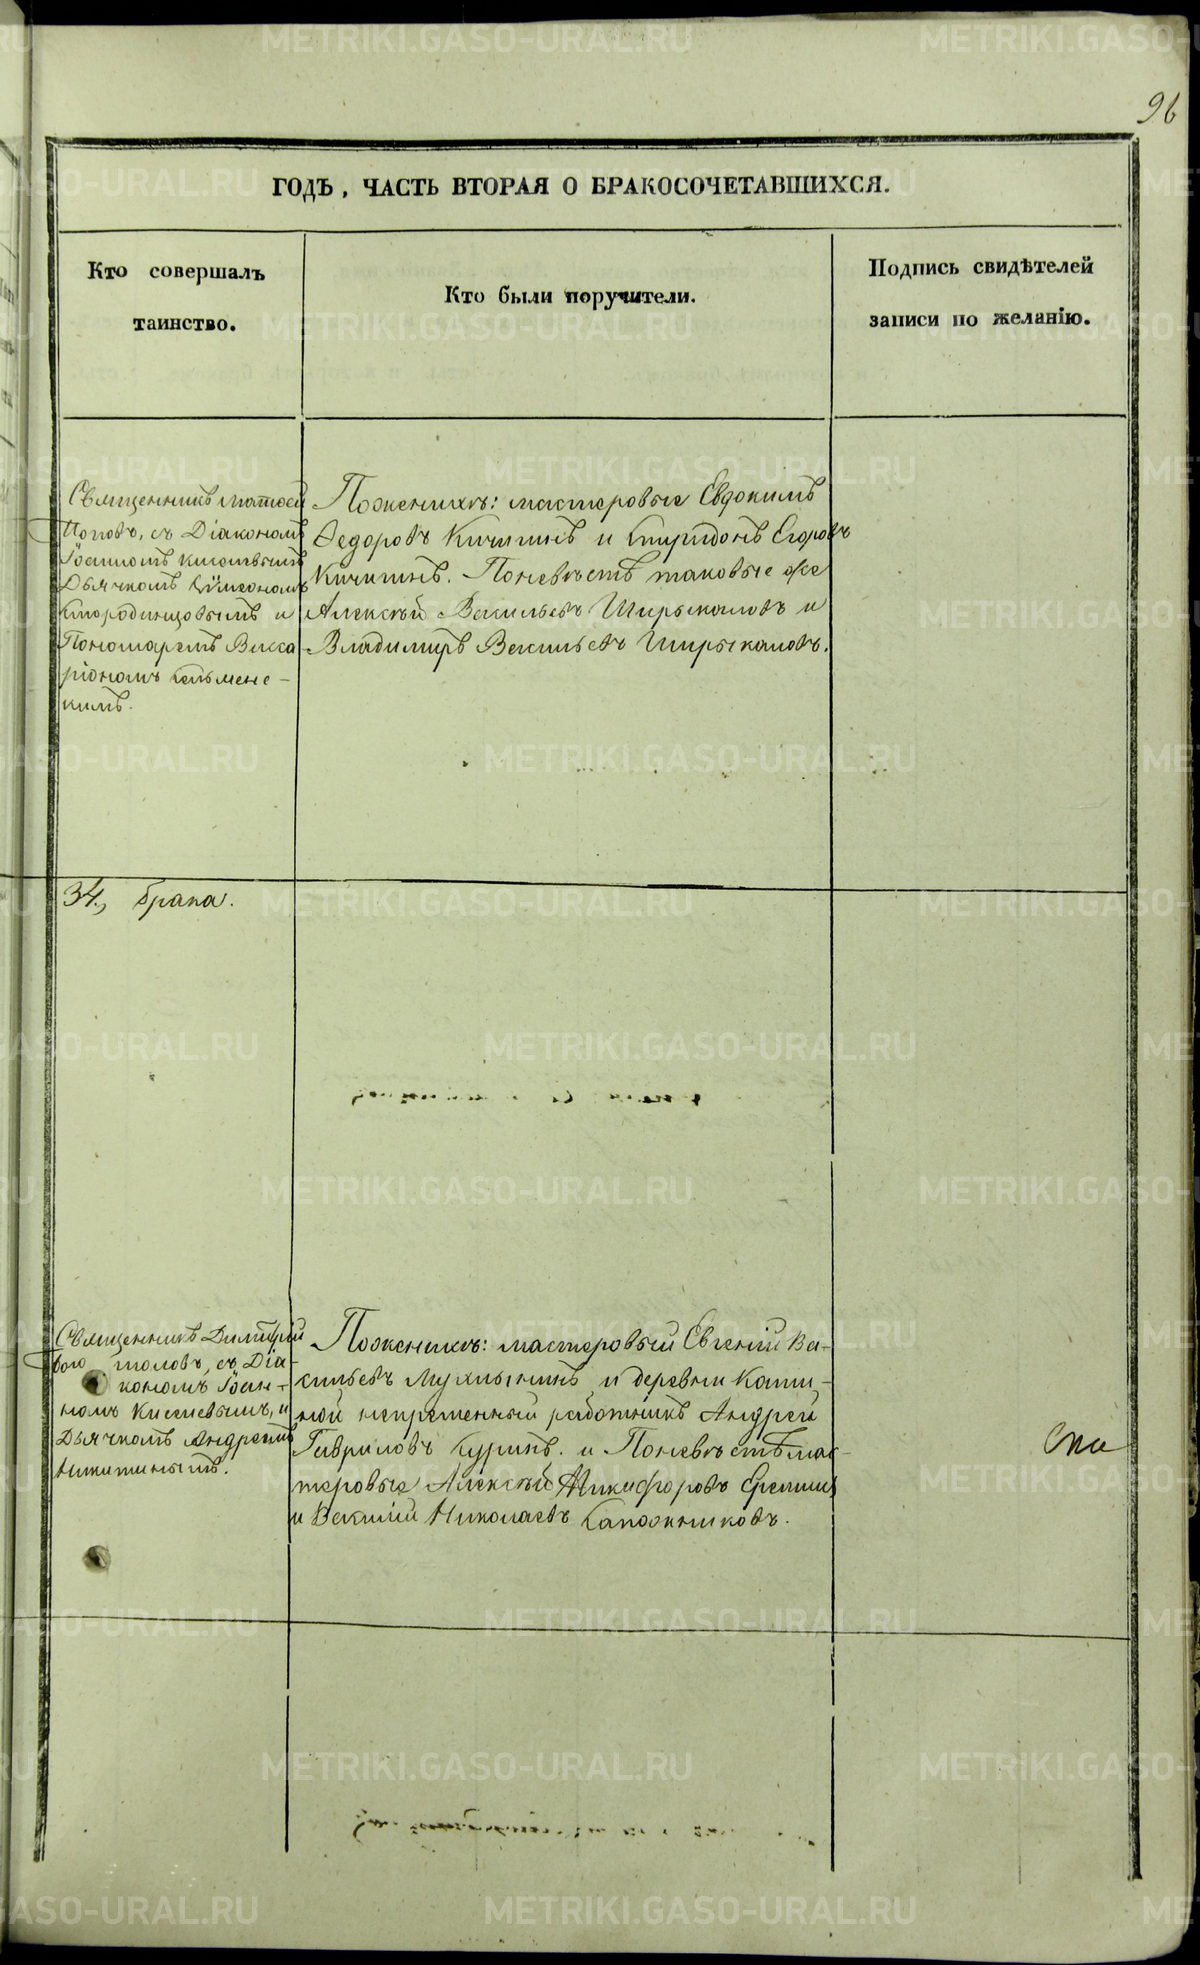 96
ГОДЪ, ЧАСТЬ ВТОРАЯ О БРАКОСОЧЕТАВШИХСЯ.
Кто совершалъ
таинство.
Кто были поручители.
Подпись свидѣтелей
записи по желанію.
Священникъ Матвей
Поповъ, съ Діакономъ
Іоанномъ Киселевымъ
Дьячкомъ Сѵмеономъ
и
Пономаремъ Викка
ріономъ
кимъ.
Поженихѣ: мастеровые Евдокимъ
Федоровъ Кичигинъ и Спиридонъ Егоровъ
Кичигинъ. Поневѣстѣ таковые же
Алексѣй Васильевъ Ширыкаловъ и
Владимиръ Васильевъ Ширыкаловъ.
34, брака.
Священникъ Димитрій
Богомоловъ, съ Діа-
кономъ Іоан-
номъ Киселевымъ, и
Дьячкомъ Андреемъ
Никитинымъ.
Поженихѣ: мастеровый Евгений Ва-
сильевъ и деревни
ной непременный работникъ Андрей
Гавриловъ Куринъ. и Поневѣстѣ мас-
теровые Алексѣй Никифоровъ Еремин
и Василій Николаевъ Сапожниковъ.
METRIKI.GASO-URAL.RU